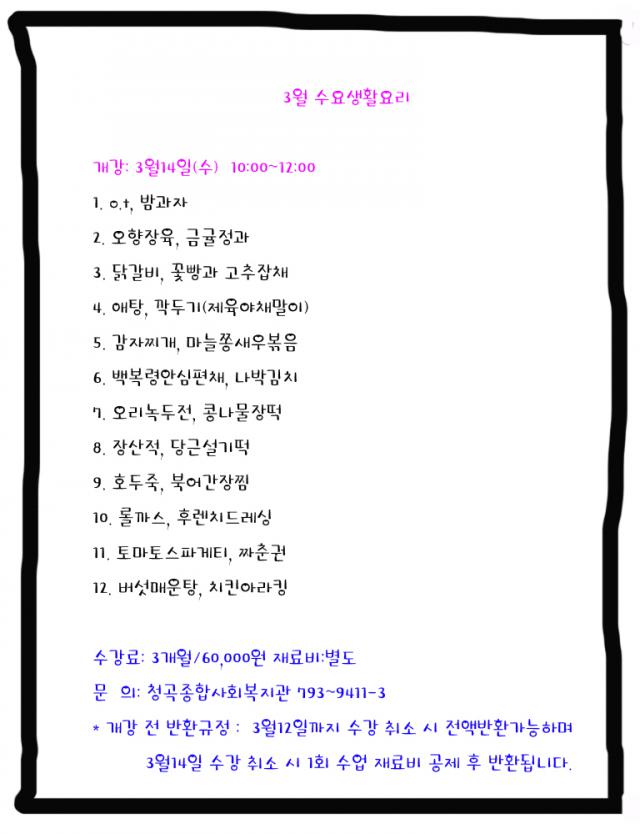 3월 수요생활요리
개강: 3월14일(수) 10:00~12:00
1. o.t, 밤과자
2. 오향장육, 금귤정과
3. 닭갈비, 꽃빵과 고추잡채
4. 애탕, 깍두기(제육야채말이)
5. 감자찌개, 마늘쫑새우볶음
6. 백복령안심편채, 나박김치
7. 오리녹두전, 콩나물장떡
8. 장산적, 당근설기떡
9. 호두죽, 북어간장찜
10. 롤까스, 후렌치드레싱
11. 토마토스파게티, 짜춘권
12. 버섯매운탕, 치킨아라킹
수강료: 3개월/60,000원 재료비:별도
문 의: 청곡종합사회복지관 793~9411-3
* 개강 전 반환규정 : 3월12일까지 수강 취소 시 전액반환가능하며
3월14일 수강 취소 시 1회 수업 재료비 공제 후 반환됩니다.